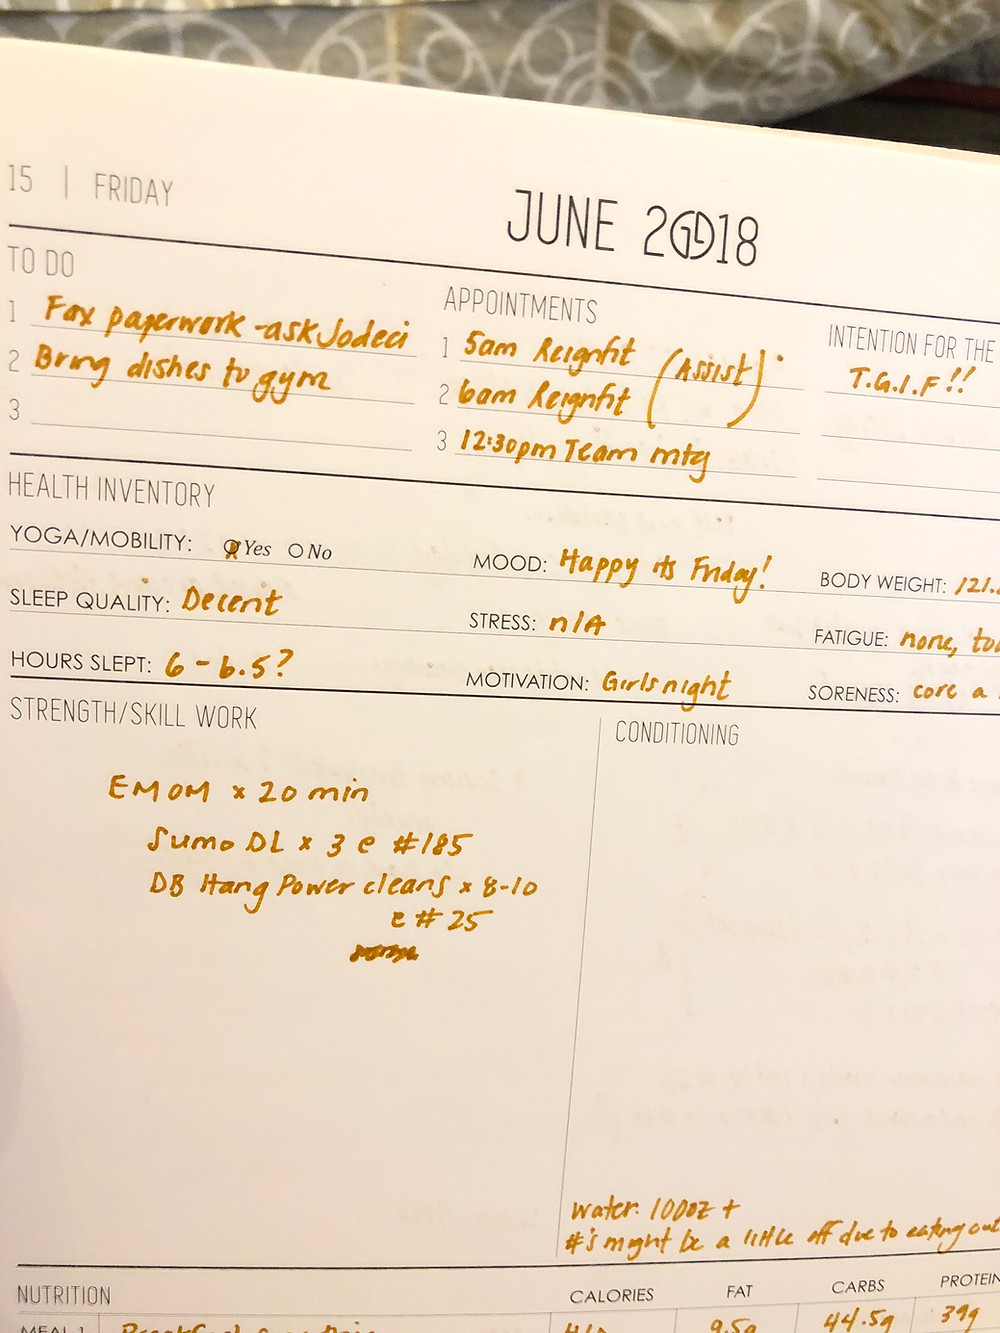 15 | FRIDAY
JUNE 2018
TO DO
1 Fax paperwork - ask Jodeci
2 Bring dishes to gym
3
APPOINTMENTS
1 5am Reignfit (Assist)
2 6am Reignfit
3 12:30pm Team mtg
INTENTION FOR THE
T.G.I.F!!
HEALTH INVENTORY
YOGA/MOBILITY: Yes No
MOOD: Happy its Friday!
BODY WEIGHT: 121.
SLEEP QUALITY: Decent
STRESS: n/A
FATIGUE: none,
HOURS SLEPT: 6 - 6.5?
MOTIVATION: Girls night
SORENESS: core a
STRENGTH/SKILL WORK
CONDITIONING
EMOM x 20 min
Sumo DL x 3 @ #185
DB Hang Power cleans x 8-10
@ #25
water: 100oz +
#'s might be a little off due to eating out
NUTRITION
CALORIES FAT CARBS PROTEIN
MEAL 1
9.5g 44.5g 39g